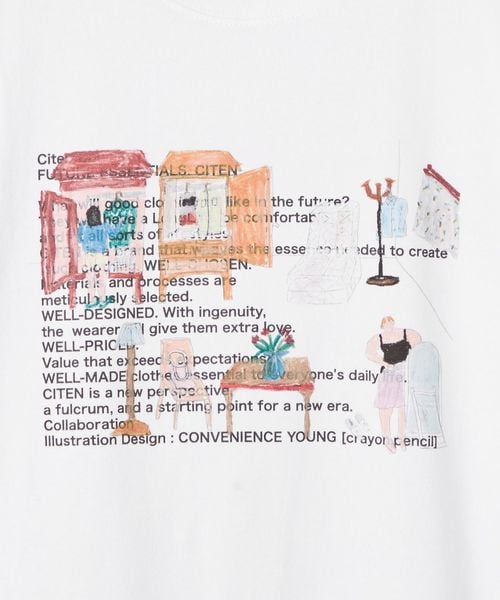 Cite
FUTURE ESSENTIALS. CITEN
will good clothing like in the future?
have a Lo be comfortable
and all sorts of
a brand that weaves the essence needed to create
clothing. WELL-CHOSEN.
Materials and processes are
meticulously selected.
WELL-DESIGNED. With ingenuity,
the wearer will give them extra love.
WELL-PRICED.
Value that exceeds expectations
WELL-MADE clothes essential to everyone's daily life.
CITEN is a new perspective,
a fulcrum, and a starting point for a new era.
Collaboration
Illustration Design : CONVENIENCE YOUNG [crayon pencil]